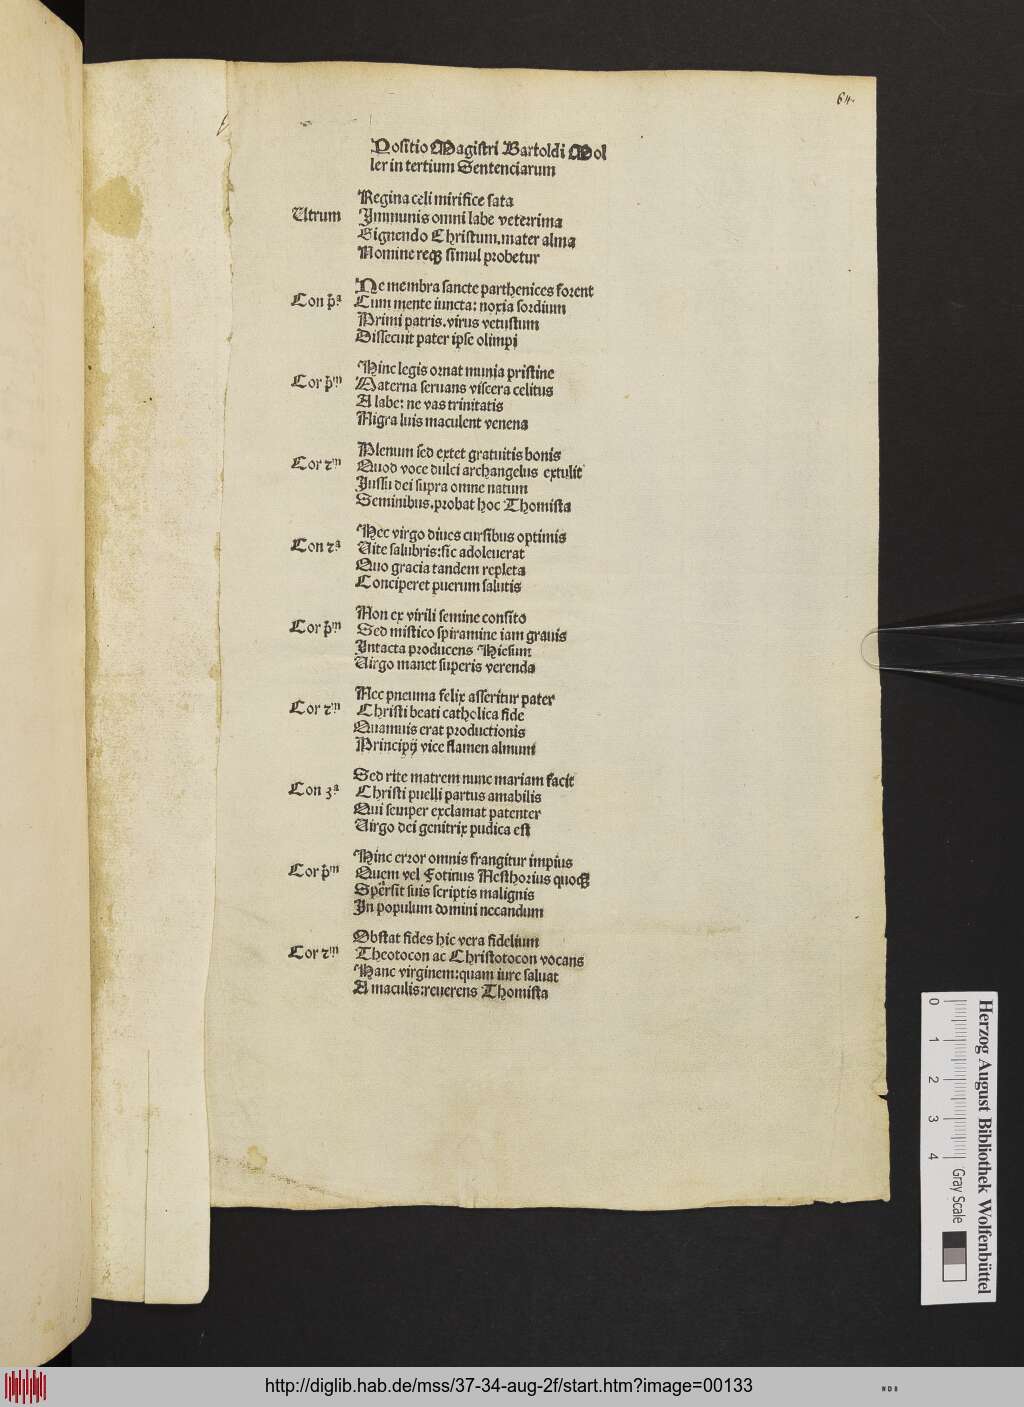 64.
Positio Magistri Bartoldi Mol
ler in tertium Sentenciarum
Regina celi mirifice sata
Utrum Immunis omni labe veterrima
Gignendo Christum. mater alma
Nomine reqꝫ simul probetur
Ne membra sancte parthenices forent
Con p̄ª Cum mente iuncta: noxia sordium
Primi patris. virus vetustum
Dissecuit pater ipse olimpi
Hinc legis ornat munia pristine
Cor p̄m Materna seruans viscera celitus
A labe: ne vas trinitatis
Nigra luis maculent venena
Plenum sed extet gratuitis bonis
Cor 2m Quod voce dulci archangelus extulit
Jussu dei supra omne natum
Seminibus. probat hoc Thomista
Hec virgo diues cursibus optimis
Con 2ª Vite salubris: sic adoleuerat
Quo gracia tandem repleta
Conciperet puerum salutis
Non ex virili semine consito
Cor p̄m Sed mistico spiramine iam grauis
Intacta producens Hiesum
Virgo manet superis verenda
Nec pneuma felix asseritur pater
Cor 2m Christi beati catholica fide
Quamuis erat productionis
Principij vice flamen almum
Sed rite matrem nunc mariam facit
Con 3ª Christi puelli partus amabilis
Qui semper exclamat patenter
Virgo dei genitrix pudica est
Hinc error omnis frangitur impius
Cor p̄m Quem vel Fotinus Nesthorius quoqꝫ
Spersit suis scriptis malignis
In populum domini necandum
Obstat fides hic vera fidelium
Cor 2m Theotocon ac Christotocon vocans
Hanc virginem: quam iure saluat
A maculis: reuerens Thomista
Herzog August Bibliothek Wolfenbüttel
0 1 2 3 4 Gray Scale
http://diglib.hab.de/mss/37-34-aug-2f/start.htm?image=00133